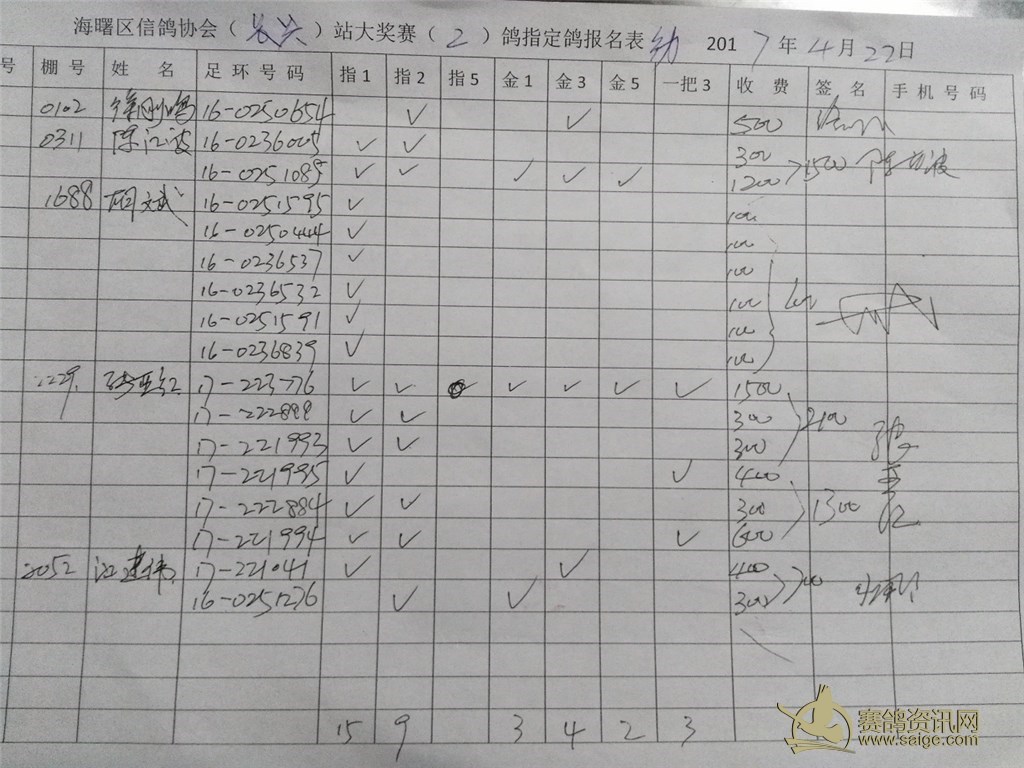 海曙区信鸽协会（长兴）站大奖赛（2）鸽指定鸽报名表 幼 2017年4月22日
号 棚号 姓名 足环号码 指1 指2 指5 金1 金3 金5 一把3 收费 签名 手机号码
0102 16-0250654 ✓ ✓ 500
0311 陈江波 16-0236005 ✓ ✓ 300
16-0251089 ✓ ✓ ✓ ✓ ✓ 1200 1500 陈江波
1688 胡文斌 16-0251595 ✓ 100
16-0250444 ✓ 100
16-0236537 ✓ 100
16-0236532 ✓ 100 600
16-0251591 ✓ 100
16-0236839 ✓ 100
2229 17-223776 ✓ ✓ ✓ ✓ ✓ ✓ 1500
17-222888 ✓ ✓ 300 2100
17-221993 ✓ ✓ 300
17-221995 ✓ ✓ 400
17-222884 ✓ ✓ 300 1300
17-221994 ✓ ✓ ✓ 600
2052 江建伟 17-221041 ✓ ✓ 400 700
16-0251236 ✓ ✓ 300
15 9 3 4 2 3
赛鸽资讯网
www.saige.com